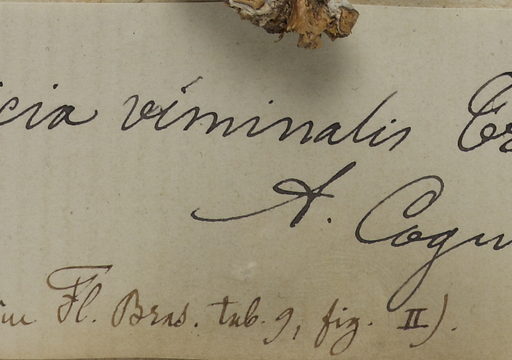 cia viminalis
A. Cogn
Fl. Bras. tab. 9, fig. II).